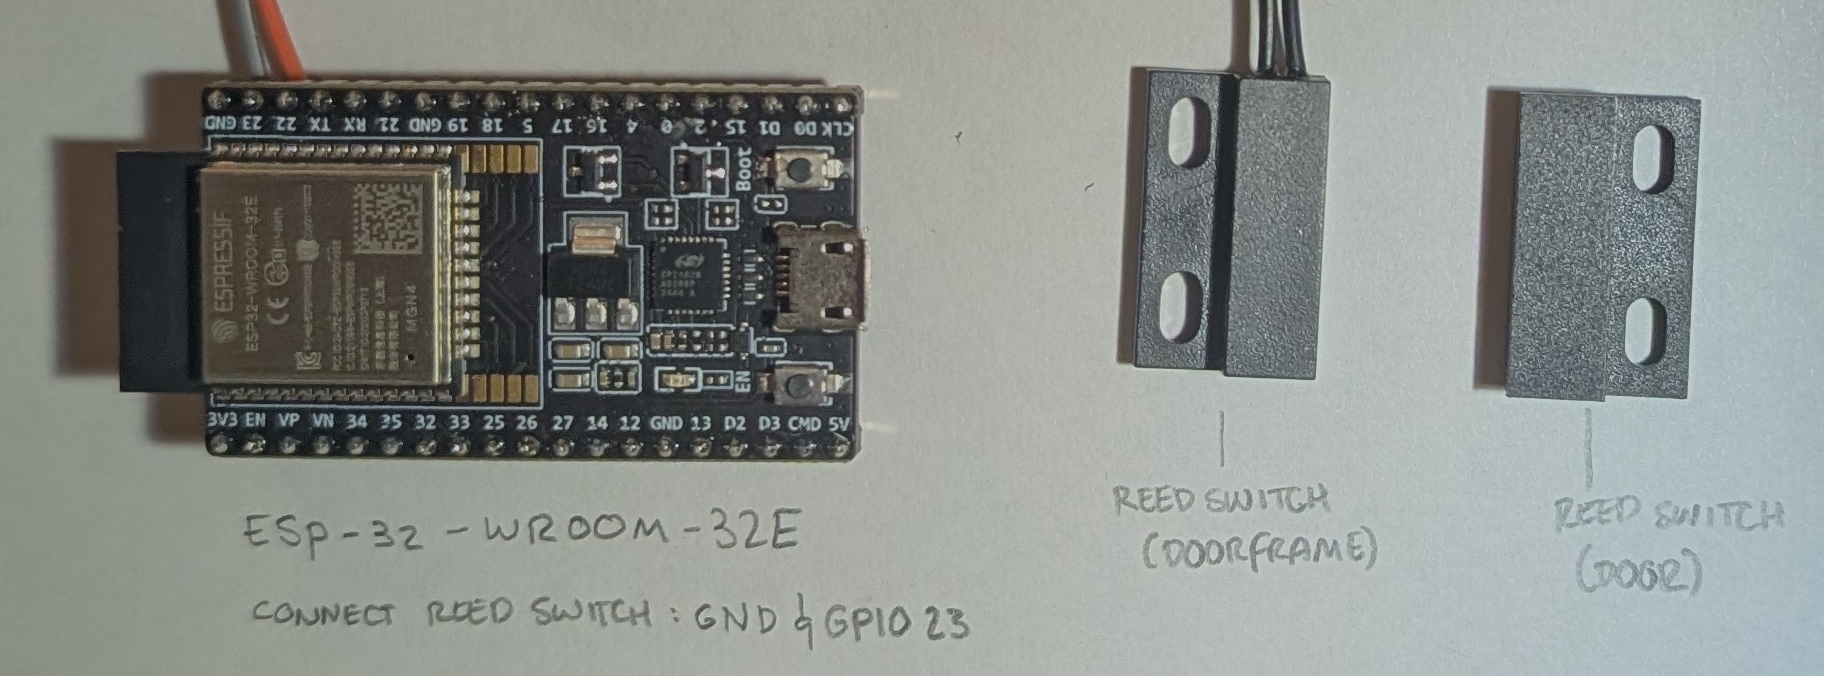 GND 23 22 TX RX 21 GND 19 18 5 17 16 4 0 2 15 D1 D0 CLK
Boot
ESPRESSIF
ESP32-WROOM-32E
CE
MGN4
EN
3V3 EN VP VN 34 35 32 33 25 26 27 14 12 GND 13 D2 D3 CMD 5V
ESP-32-WROOM-32E
CONNECT REED SWITCH: GND & GPIO 23
REED SWITCH
(DOORFRAME)
REED SWITCH
(DOOR)